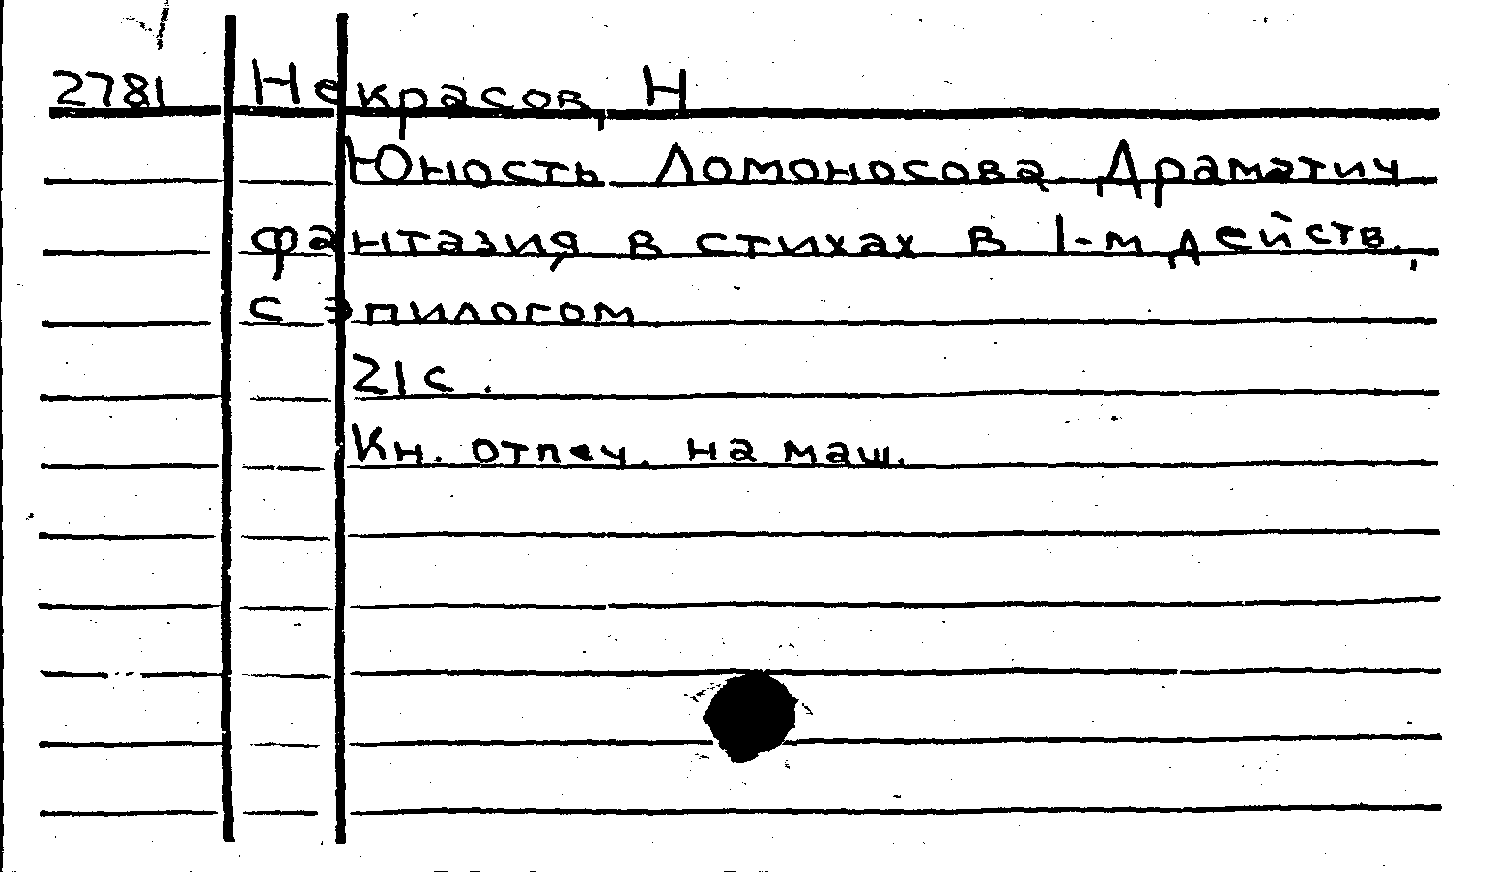 2781 Некрасов, Н
Юность Ломоносова. Драматич
фантазия в стихах в 1-м действ.,
с эпилогом
21 с.
Кн. отпеч. на маш.